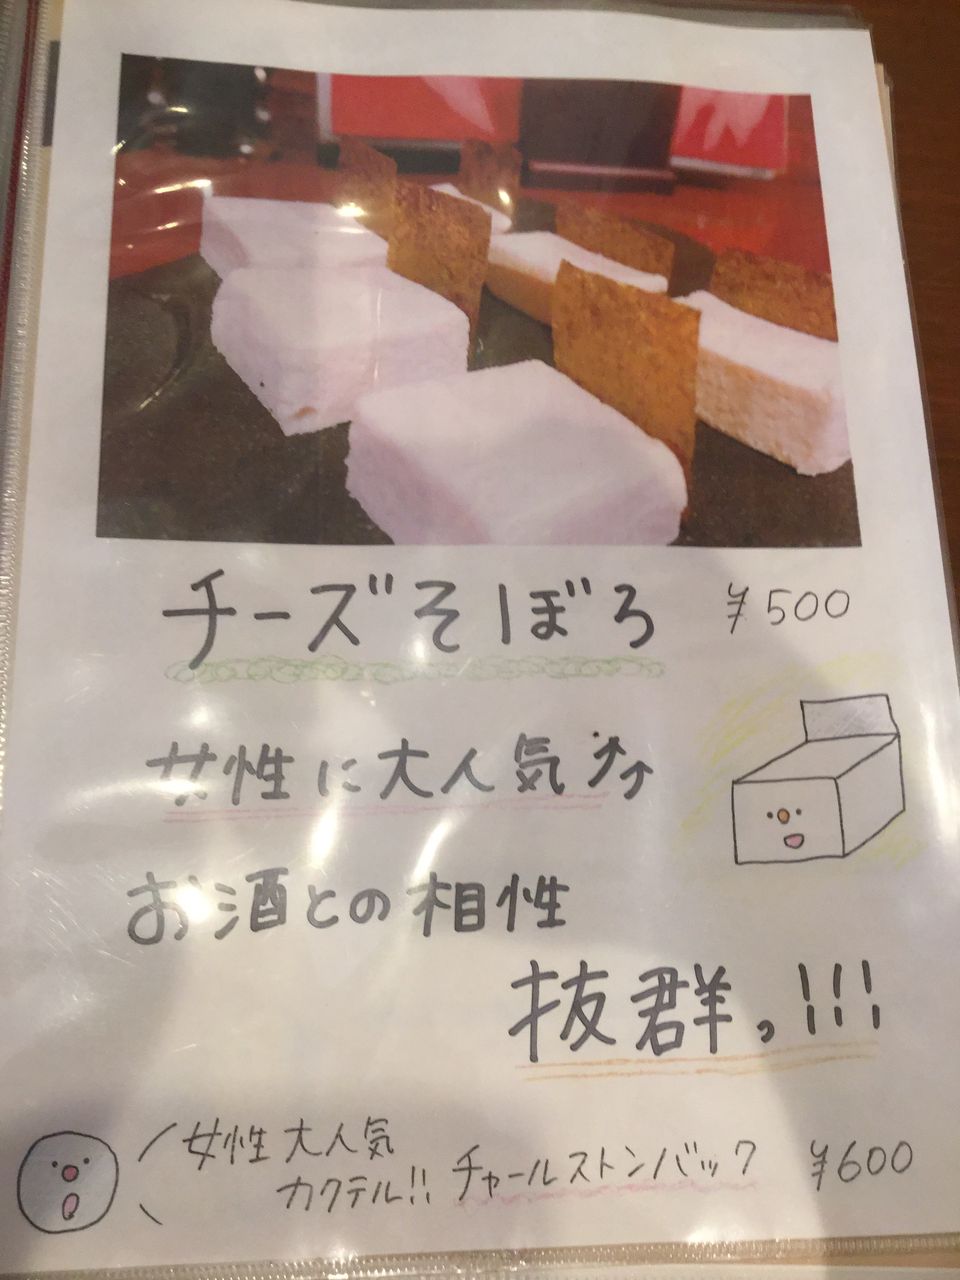 チーズそぼろ ¥500
女性に大人気↗↗
お酒との相性
抜群っ!!!
女性大人気
カクテル!! チャールストンバック ¥600